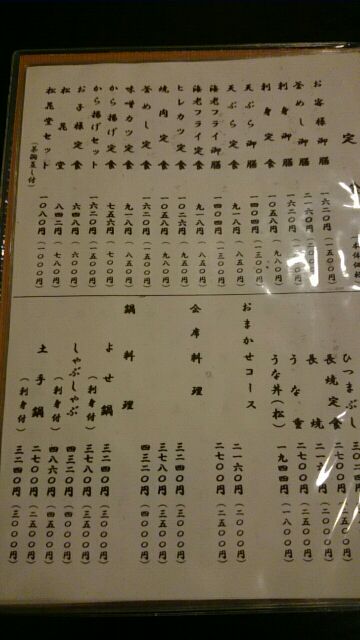 定食
お客様御膳 一六二〇円（一五〇〇円）
釜めし御膳 二一六〇円（二〇〇〇円）
刺身御膳 一六二〇円（一五〇〇円）
刺身定食 一〇五八円（九八〇円）
天ぷら御膳 一四〇四円（一三〇〇円）
天ぷら定食 九一八円（八五〇円）
海老フライ御膳 一四〇四円（一三〇〇円）
海老フライ定食 九一八円（八五〇円）
ヒレカツ定食 一〇二六円（九五〇円）
焼肉定食
釜めし定食 一六二〇円（一五〇〇円）
味噌カツ定食 九一八円（八五〇円）
から揚げ定食 七五六円（七〇〇円）
から揚げセット 一六二〇円（一五〇〇円）
お子様定食 六四八円（六〇〇円）
松花堂 八四二円（七八〇円）
松花堂セット （茶碗蒸し付） 一〇八〇円（一〇〇〇円）
ひつまぶし
長焼定食
長焼
うな重 二七〇〇円（二五〇〇円）
うな丼（松） 一九四四円（一八〇〇円）
おまかせコース
二一六〇円（二〇〇〇円）
二七〇〇円（二五〇〇円）
会席料理
三二四〇円（三〇〇〇円）
三七八〇円（三五〇〇円）
四三二〇円（四〇〇〇円）
鍋料理
よせ鍋 三二四〇円（三〇〇〇円）
（刺身付） 三七八〇円（三五〇〇円）
しゃぶしゃぶ 四三二〇円（四〇〇〇円）
（刺身付） 四八六〇円（四五〇〇円）
土手鍋 二七〇〇円（二五〇〇円）
（刺身付） 三二四〇円（三〇〇〇円）